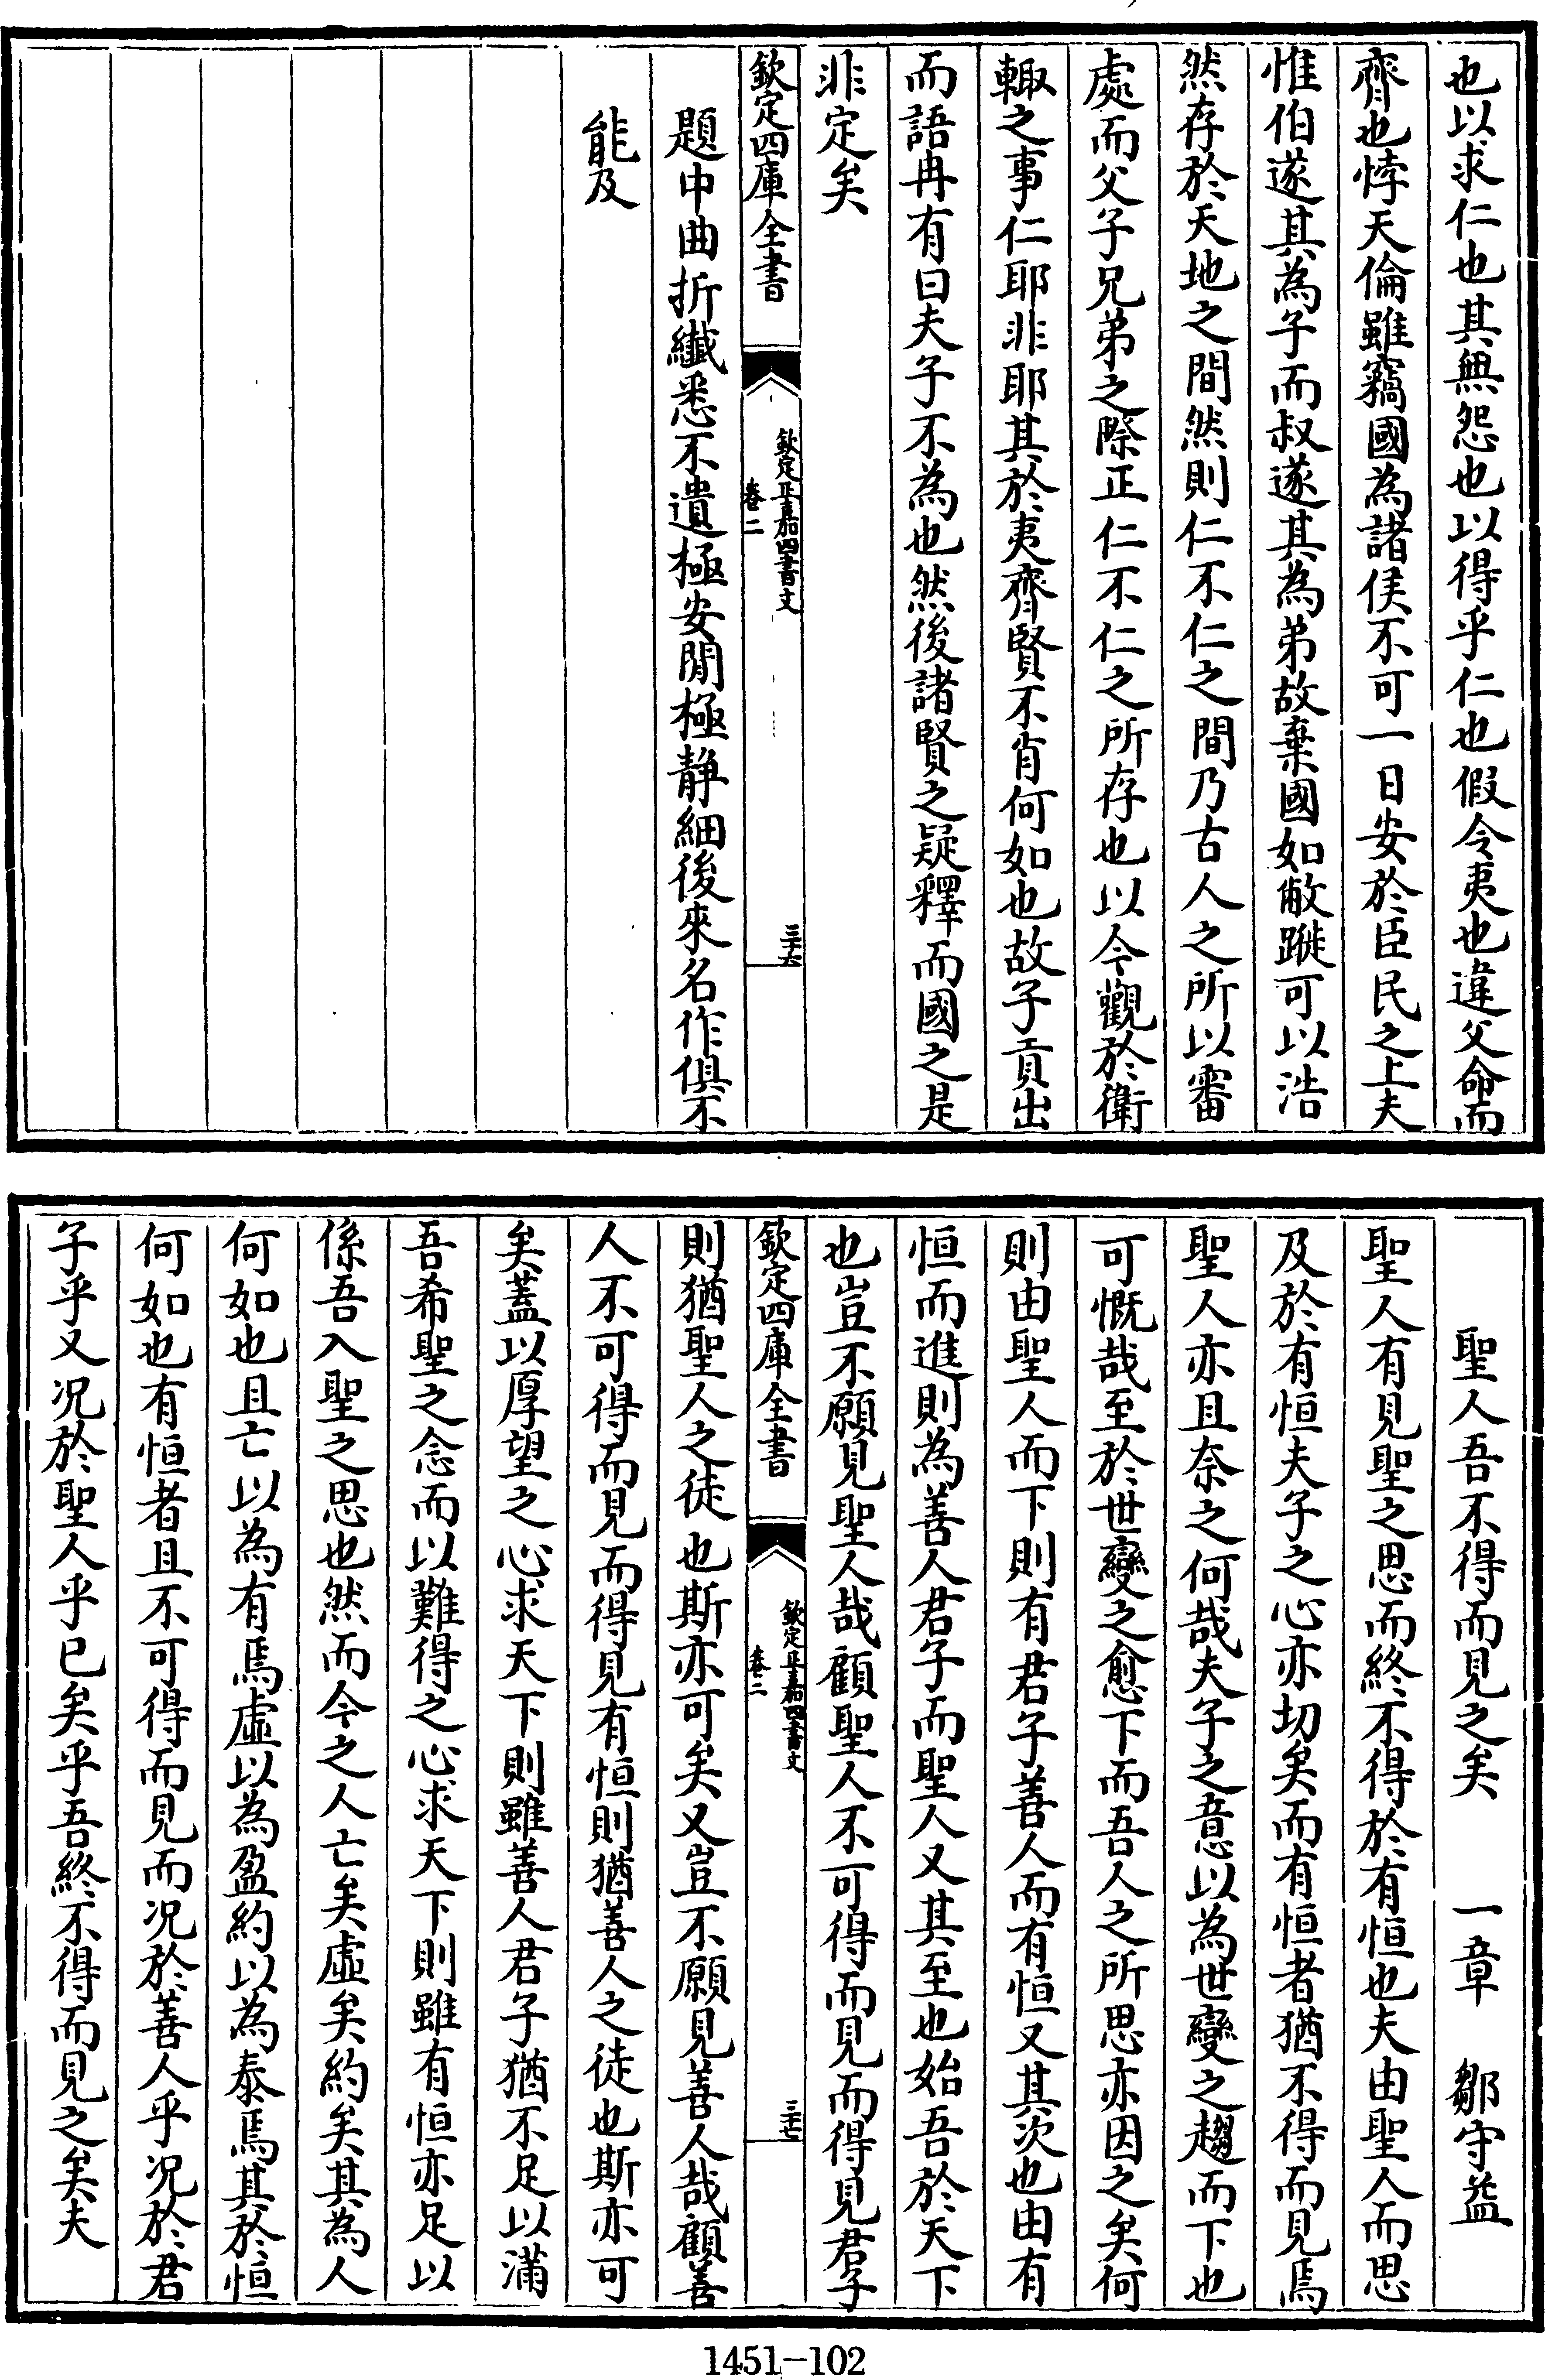 也以求仁也其無怨也以得乎仁也假令夷也違父命而
齊也悖天倫雖竊國為諸侯不可一日安於臣民之上夫
惟伯遂其為子而叔遂其為弟故棄國如敝蹝可以浩
然存於天地之間然則仁不仁之間乃古人之所以審
處而父子兄弟之際正仁不仁之所存也以今觀於衛
輒之事仁耶非耶其於夷齊賢不肖何如也故子貢出
而語冉有曰夫子不為也然後諸賢之疑釋而國之是
非定矣
欽定四庫全書
欽定正嘉四書文
卷二
三十六
題中曲折纖悉不遺極安閒極靜細後來名作俱不
能及
聖人吾不得而見之矣 一章 鄒守益
聖人有見聖之思而終不得於有恒也夫由聖人而思
及於有恒夫子之心亦切矣而有恒者猶不得而見焉
聖人亦且奈之何哉夫子之意以為世變之趨而下也
可慨哉至於世變之愈下而吾人之所思亦因之矣何
則由聖人而下則有君子善人而有恒又其次也由有
恒而進則為善人君子而聖人又其至也始吾於天下
也豈不願見聖人哉顧聖人不可得而見而得見君子
欽定四庫全書
欽定正嘉四書文
卷二
三十七
則猶聖人之徒也斯亦可矣又豈不願見善人哉顧善
人不可得而見而得見有恒則猶善人之徒也斯亦可
矣蓋以厚望之心求天下則雖善人君子猶不足以滿
吾希聖之念而以難得之心求天下則雖有恒亦足以
係吾入聖之思也然而今之人亡矣虛矣約矣其為人
何如也且亡以為有焉虛以為盈約以為泰焉其於恒
何如也有恒者且不可得而見而況於善人乎況於君
子乎又況於聖人乎已矣乎吾終不得而見之矣夫
1451-102